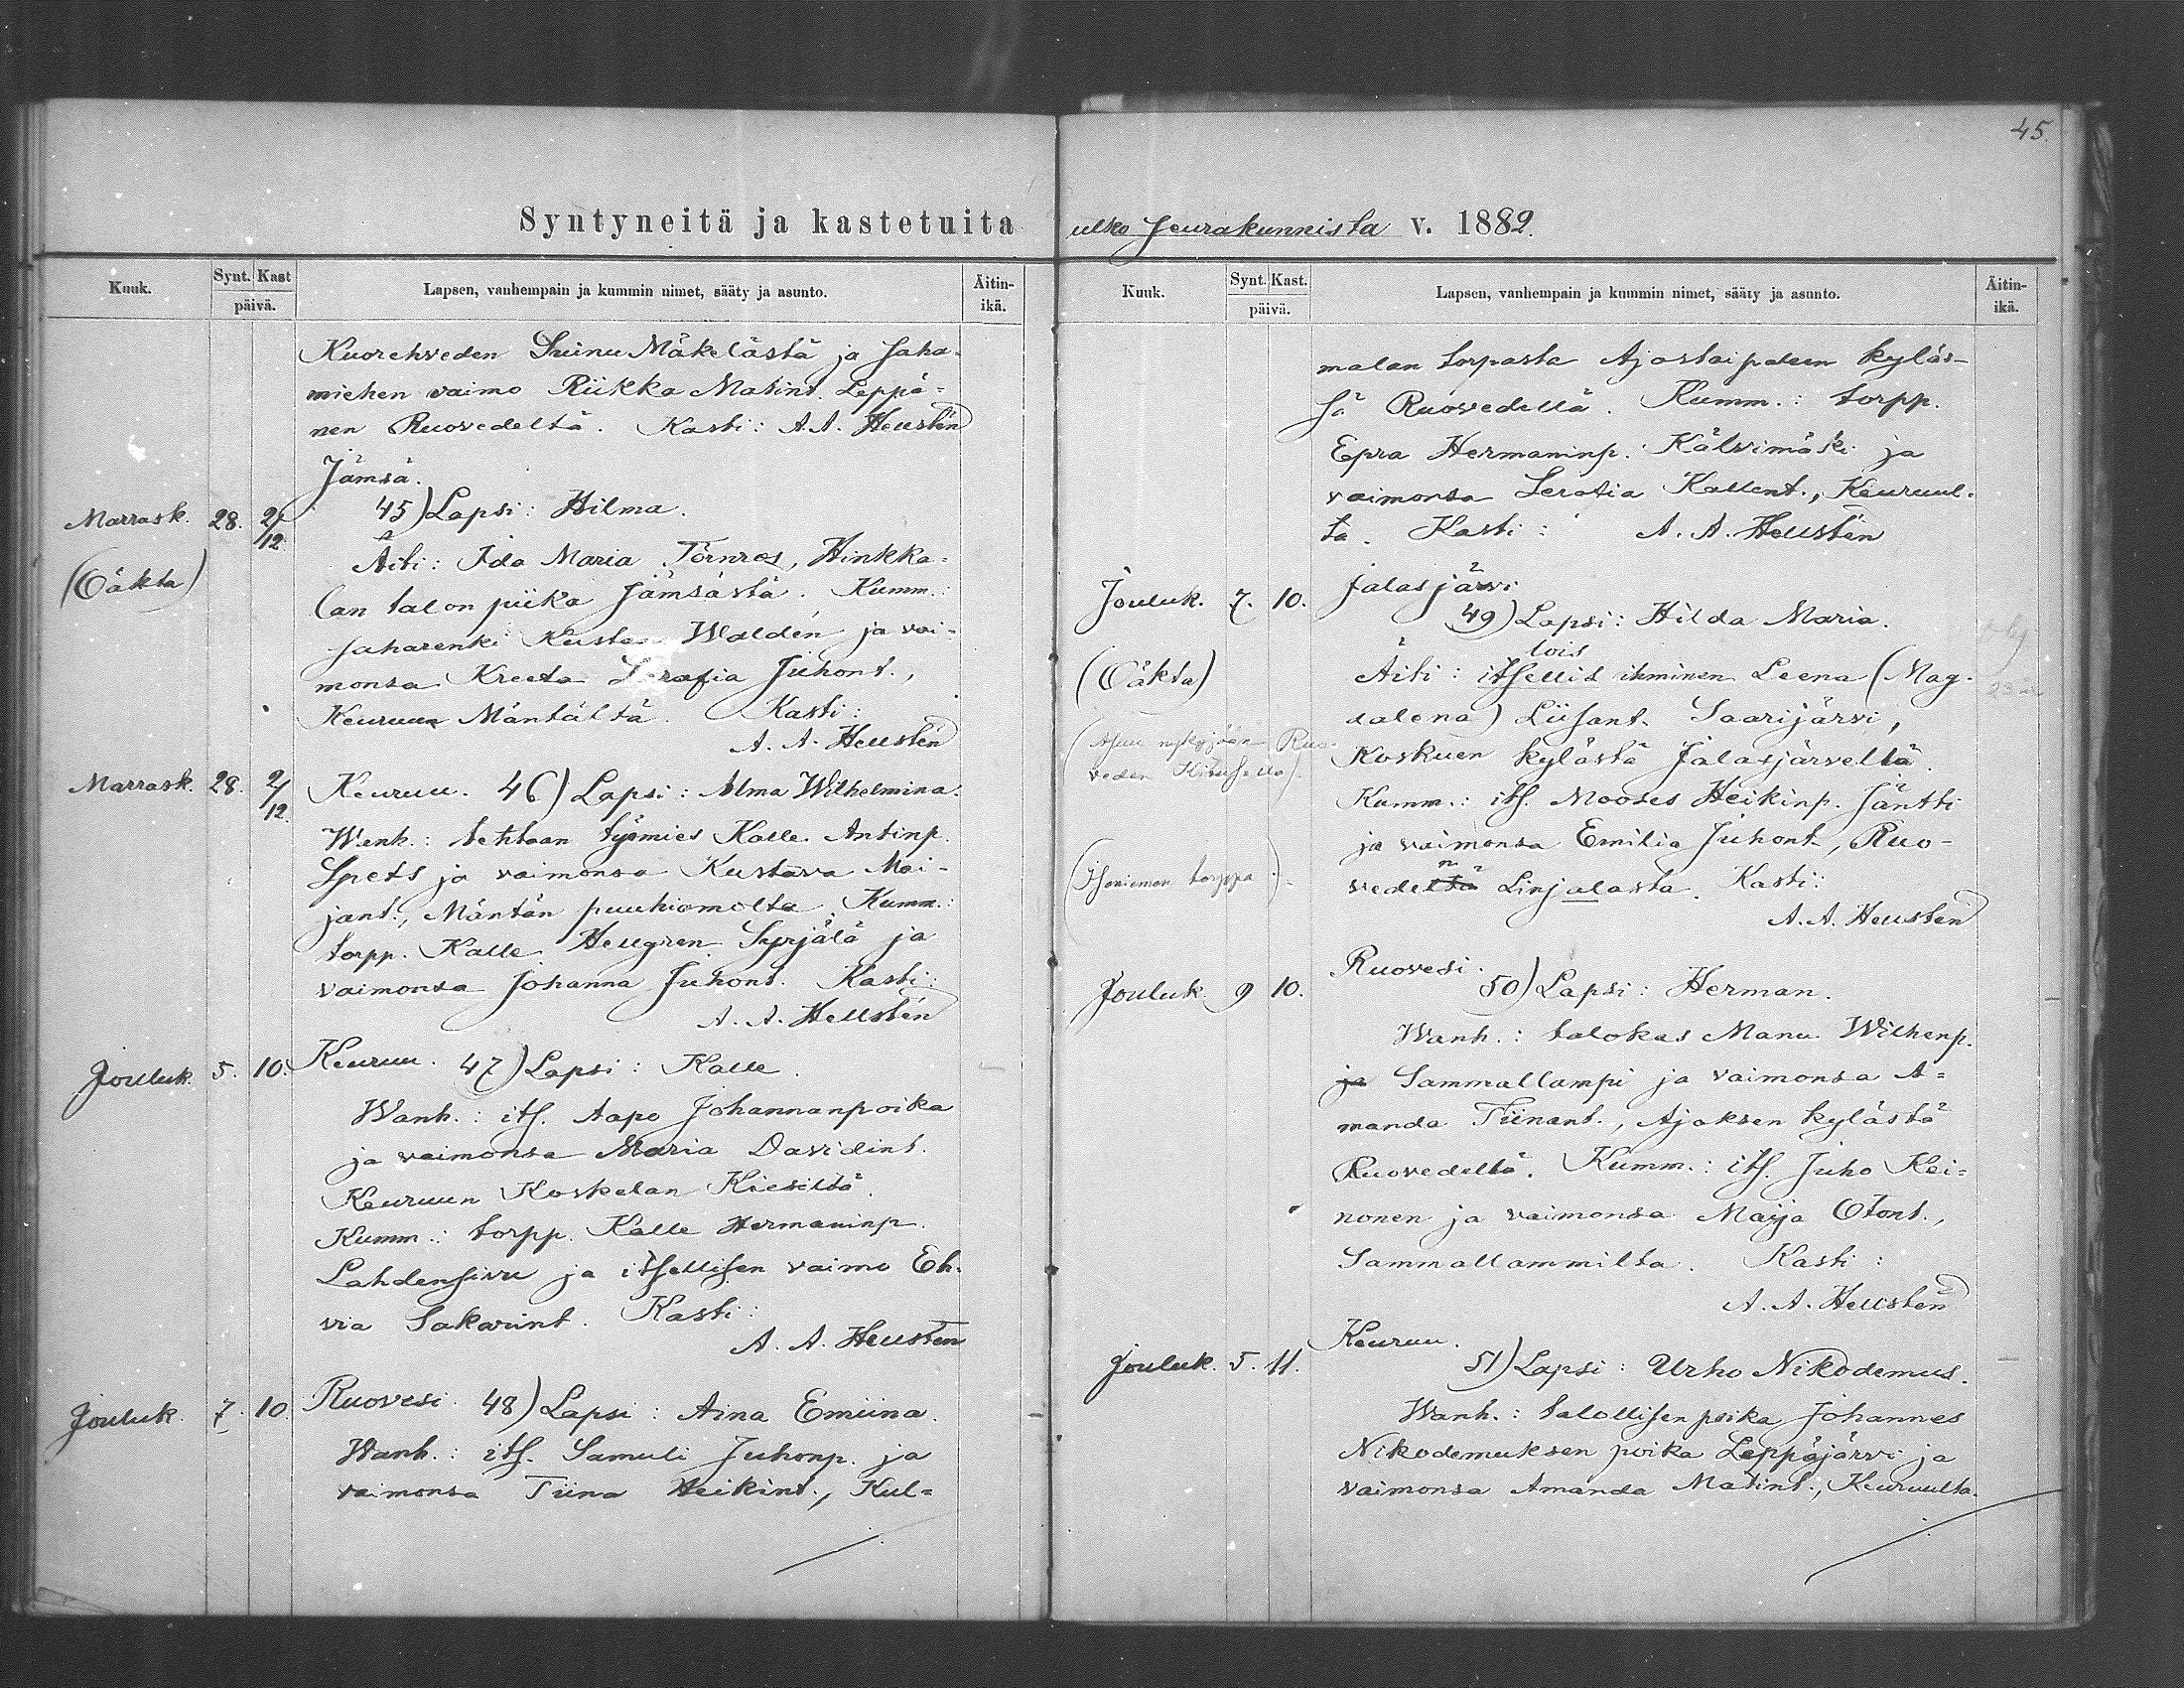 45.
Syntyneitä ja kastetuita ulko seurakunnista v. 1882.
Kuuk. Synt. Kast päivä. Lapsen, vanhempain ja kummin nimet, sääty ja asunto. Äitin-ikä.
Kuorehveden Suinu Mäkelästä ja saha-
miehen vaimo Riikka Matint. Leppä-
nen Ruovedeltä. Kasti: A. A. Hellstén
Jämsä.
Marrask. 28. 2/12. 45) Lapsi: Hilma.
(Oäkta)
Äiti: Ida Maria Törnros, Hinkka-
lan talon piika Jämsästä. Kumm.:
saharenki Kusta Waldén ja vai-
monsa Kreeta Serafia Juhont.,
Keuruun Mäntältä. Kasti:
A. A. Hellstén
Marrask. 28. 2/12. Keuruu. 46) Lapsi: Alma Wilhelmina.
Wanh.: tehtaan työmies Kalle Antinp.
Spets ja vaimonsa Kustava Mai-
jant., Mäntän puuhiomolta. Kumm.:
torpp. Kalle Hellgren Syrjälä ja
vaimonsa Johanna Juhont. Kasti:
A. A. Hellstén
Jouluk. 5. 10. Keuruu. 47) Lapsi: Kalle.
Wanh.: its. Aapo Johannanpoika
ja vaimonsa Maria Davidint.
Keuruun Koskelan Kiesiltä.
Kumm.: torpp. Kalle Hermaninp.
Lahdensivu ja itsellisen vaimo Eh-
via Sakarint. Kasti:
A. A. Hellstén
Jouluk. 7. 10. Ruovesi. 48) Lapsi: Aina Emiina.
Wanh.: its. Samuli Juhonp. ja
vaimonsa Tiina Heikint., Kul-
Kuuk. Synt. Kast. päivä. Lapsen, vanhempain ja kummin nimet, sääty ja asunto. Äitin-ikä.
malan torpasta Ajostaipaleen kyläs-
sä Ruovedellä. Kumm.: torpp.
Epra Hermaninp. Kälvimäki ja
vaimonsa Serafia Kallent., Keuruul-
ta. Kasti: A. A. Hellstén
Jalasjärvi.
Jouluk. 7. 10. 49) Lapsi: Hilda Maria.
lois
(Oäkta) Äiti: itsellis ihminen Leena (Mag-
dalena) Liisant. Saarijärvi,
(Asuu nykyjään Ruo-
veden
Koskuen kylästä Jalasjärveltä.
Kumm.: its. Mooses Heikinp. Jäntti
ja vaimonsa Emilia Juhont., Ruo-
(Isoniemen torppa).
n
vedeltä Linjalasta. Kasti:
A. A. Hellstén
Ruovesi.
Jouluk. 9 10. 50) Lapsi: Herman.
Wanh.: talokas Manu Wilhenp.
ja Sammallampi ja vaimonsa A-
manda Tiinant., Ajoksen kylästä
Ruovedeltä. Kumm.: its. Juho Kei-
nonen ja vaimonsa Maija Otont.,
Sammallammilta. Kasti:
A. A. Hellstén
Keuruu.
Jouluk. 5. 11. 51) Lapsi: Urho Nikodemus.
Wanh.: talollisen poika Johannes
Nikodemuksen poika Leppäjärvi ja
vaimonsa Amanda Matint., Keuruulta.